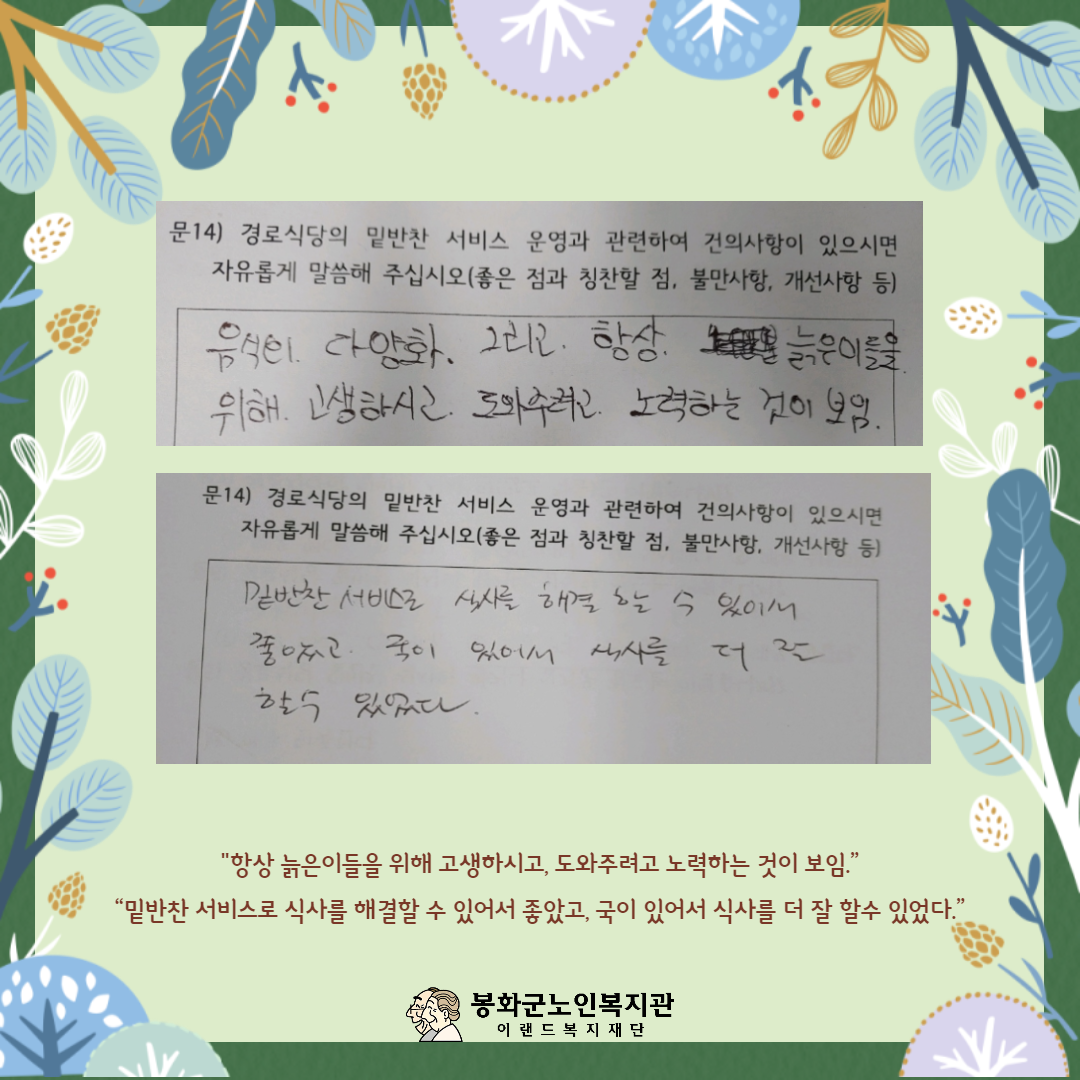 문14) 경로식당의 밑반찬 서비스 운영과 관련하여 건의사항이 있으시면
자유롭게 말씀해 주십시오(좋은 점과 칭찬할 점, 불만사항, 개선사항 등)
음식의. 다양화. 그리고. 항상. 늙은이들을.
위해. 고생하시고. 도와주려고. 노력하는 것이 보임.
문14) 경로식당의 밑반찬 서비스 운영과 관련하여 건의사항이 있으시면
자유롭게 말씀해 주십시오(좋은 점과 칭찬할 점, 불만사항, 개선사항 등)
밑반찬 서비스로 식사를 해결 할 수 있어서
좋았고. 국이 있어서 식사를 더 잘
할수 있었다.
"항상 늙은이들을 위해 고생하시고, 도와주려고 노력하는 것이 보임.”
“밑반찬 서비스로 식사를 해결할 수 있어서 좋았고, 국이 있어서 식사를 더 잘 할수 있었다.”
봉화군노인복지관
이랜드복지재단